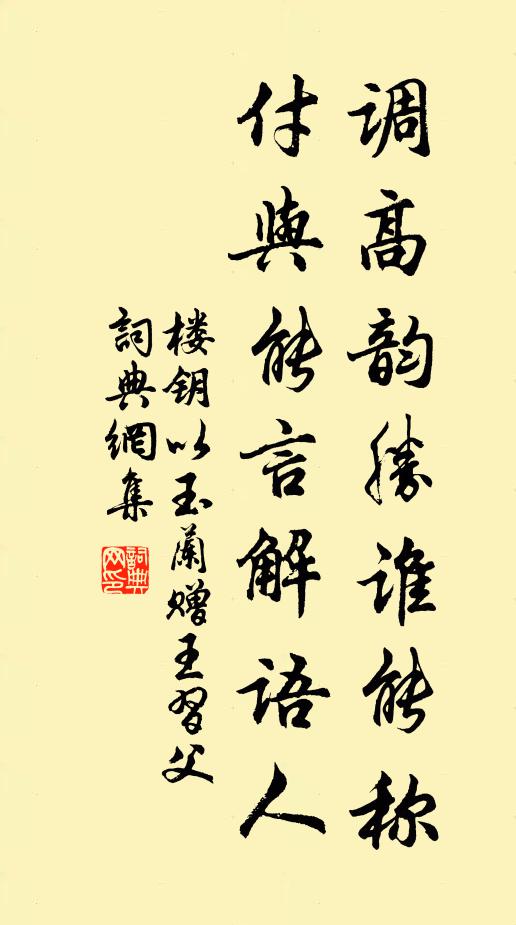 调高韵勝谁能称
付與能言解语人
楼钥以玉蘭赠王習父
詞典網集
詞典网印